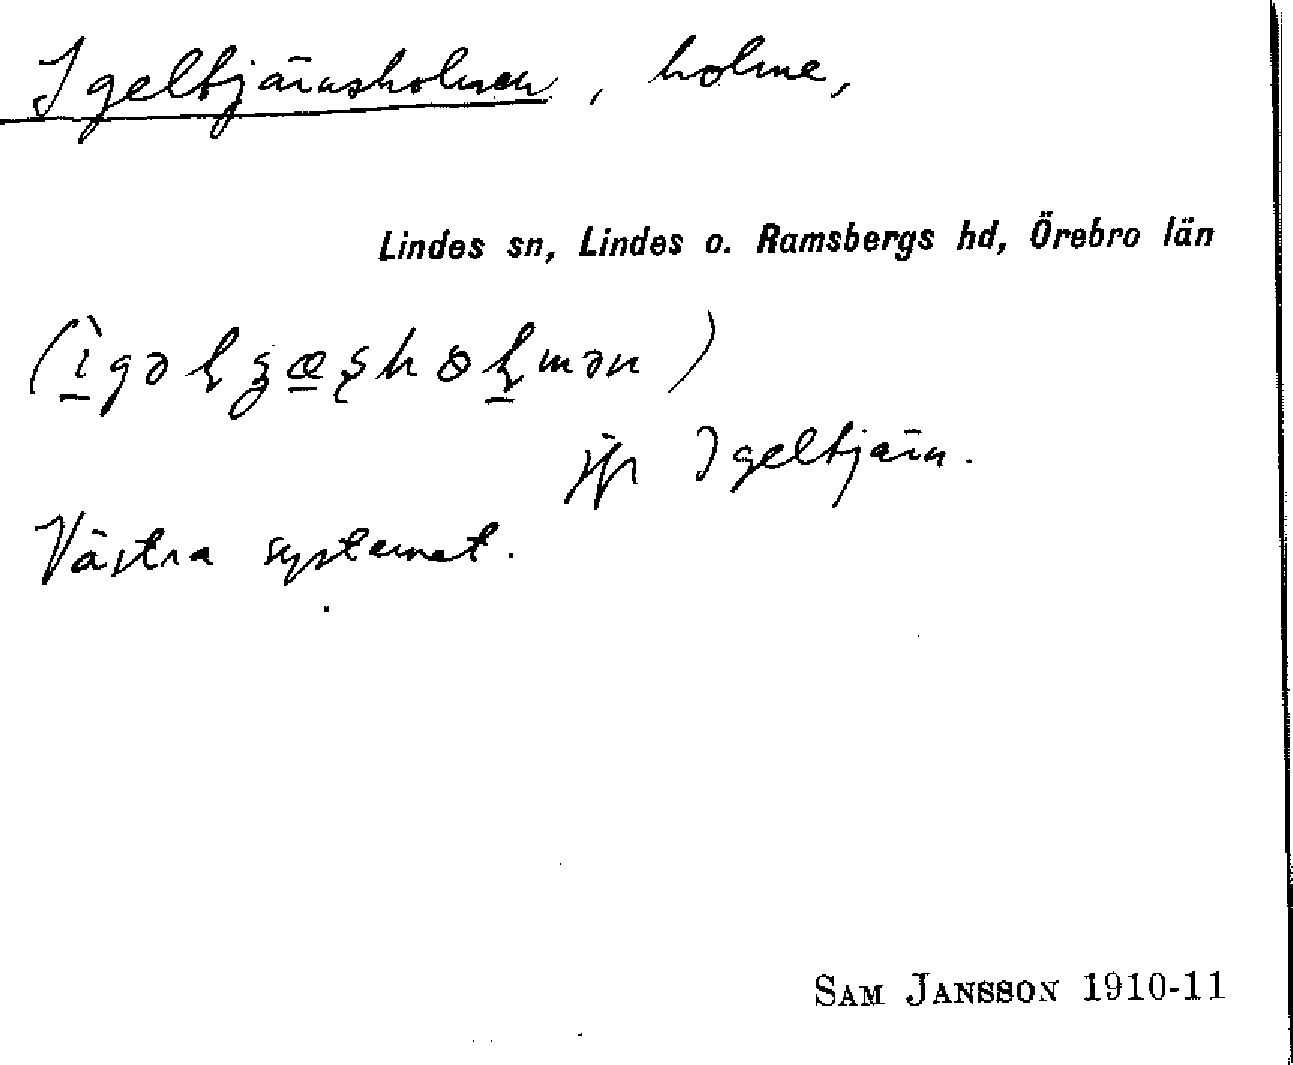 Igeltjärnsholmen, holme,
Lindes sn, Lindes o. Ramsbergs hd, Örebro län
jfr Igeltjärn.
Västra systemet.
SAM JANSSON 1910-11